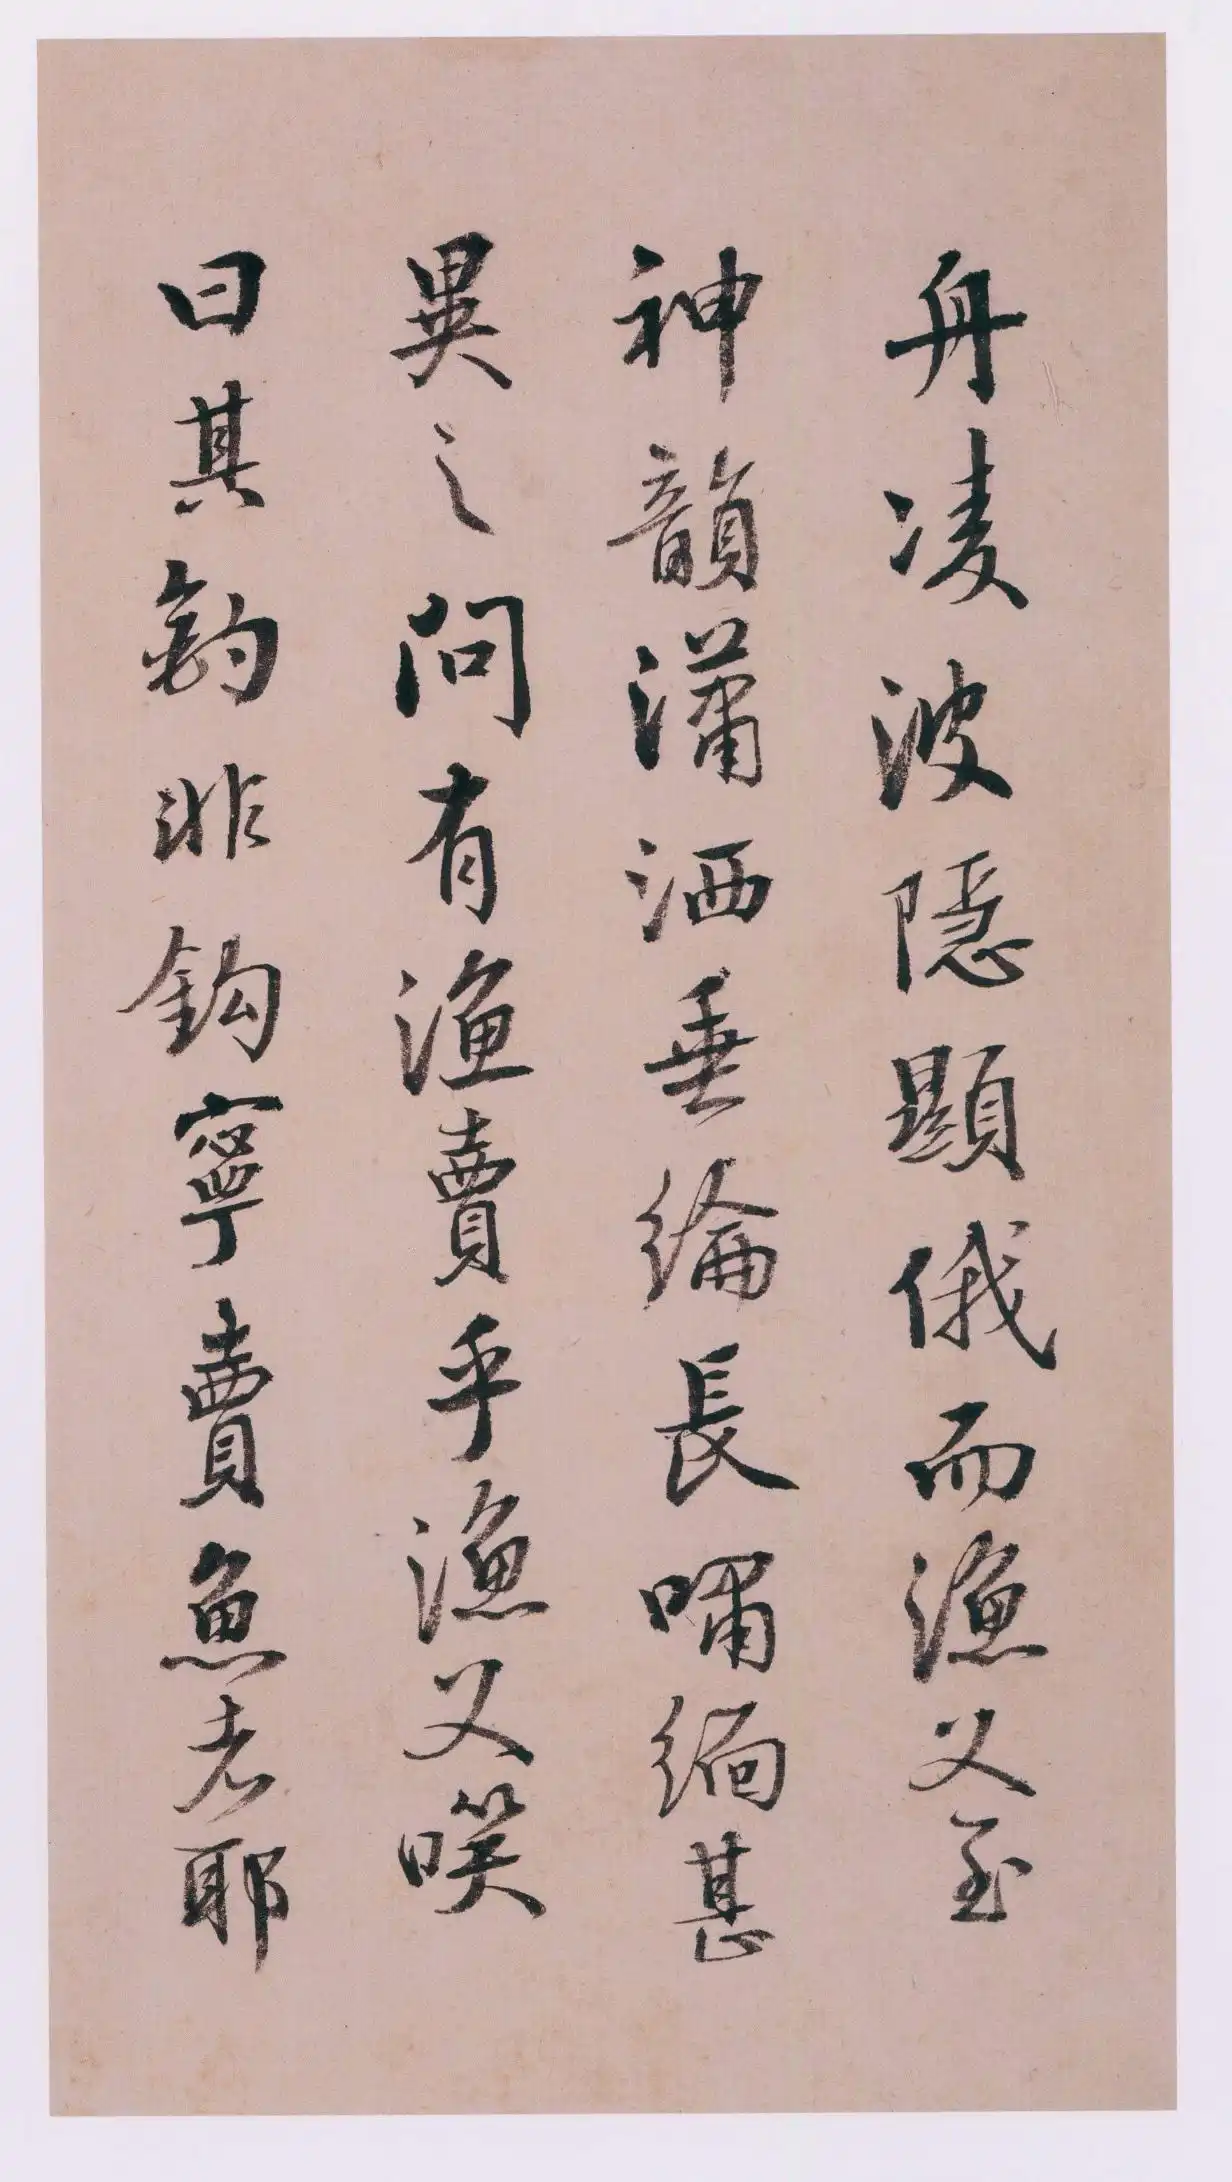 舟凌波隱顯俄而漁父至
神韻瀟洒垂綸長嘯緬甚
異之問有漁賣乎漁父笑
曰其釣非鈎寧賣魚者耶